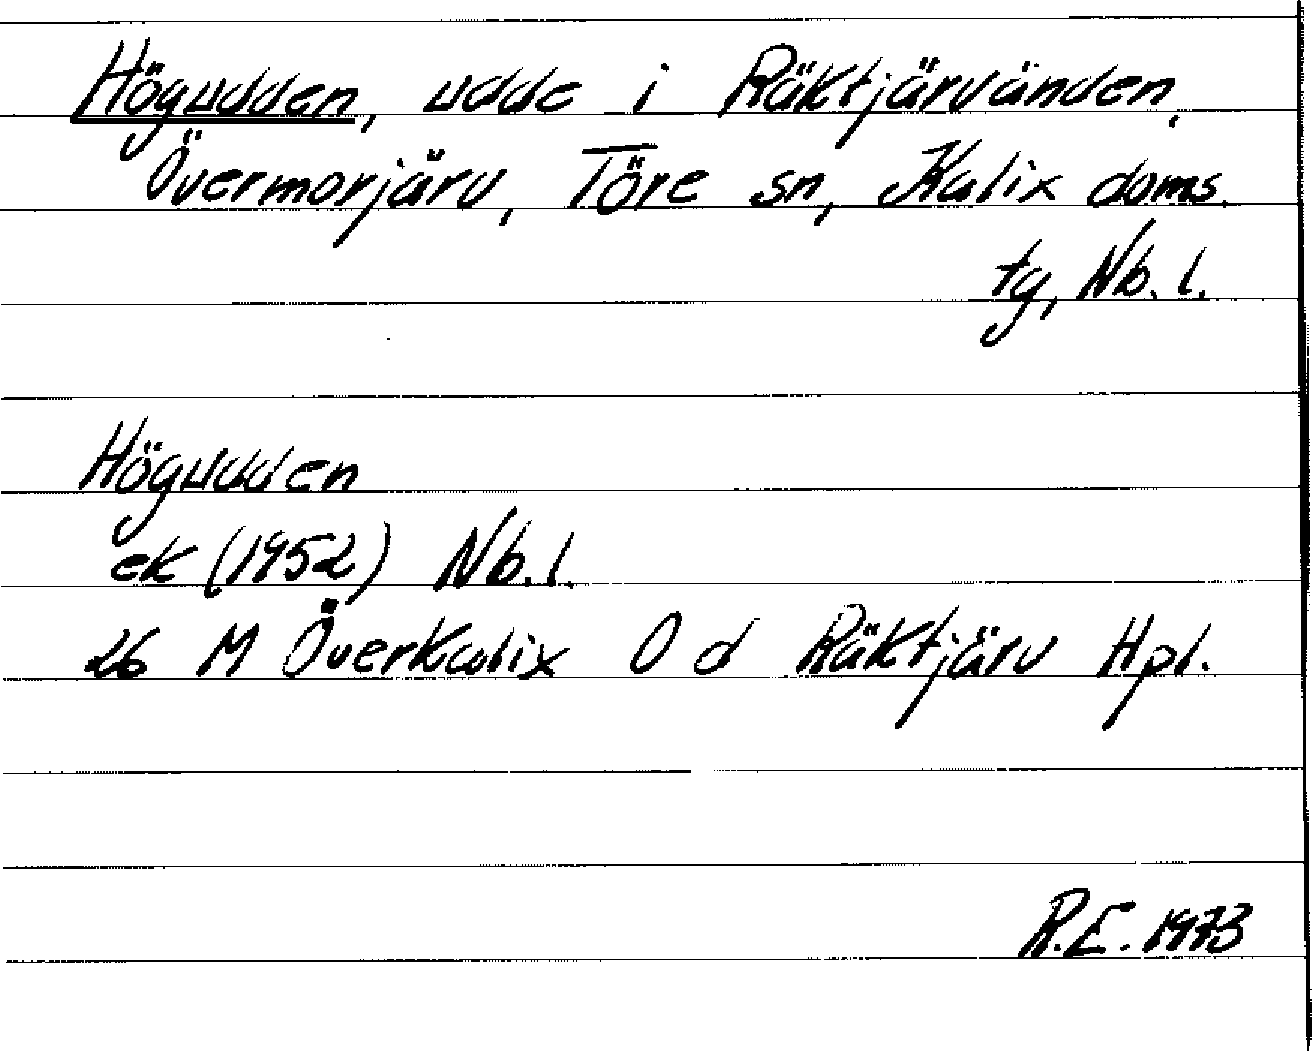 Högudden, udde i Räktjärvänden,
Övermorjärv, Töre sn, Kalix doms.
tg, Nb. l.
Högudden
ek (1952) Nb. l.
26 M Överkalix O d Räktjärv Hpl.
R.E. 1973